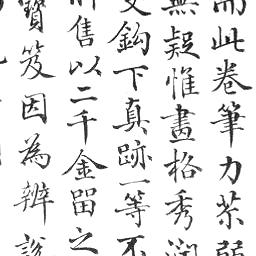 而此卷筆力茶弱
無疑惟畫格秀潤
文鈎下真跡一等不
售以二千金留之
寶笈因為辨說